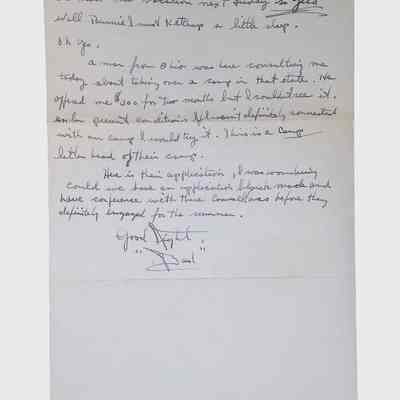 vacation next Sunday so
Well Bunnie I must Ketchup a little sleep.
Oh yes.
A man from Ohio was here consulting me
today about taking over a camp in that state. He
offered me $300 for two months but I couldn't see it.
under present conditions if I wasn't definitely connected
with our camp I would try it. This is a camp
letter head of their camp.
Here is their application, I was wondering
could we have an application blank made and
have conference with those Councellors before they
definitely engaged for the summer.
Good Night,
"Dad"